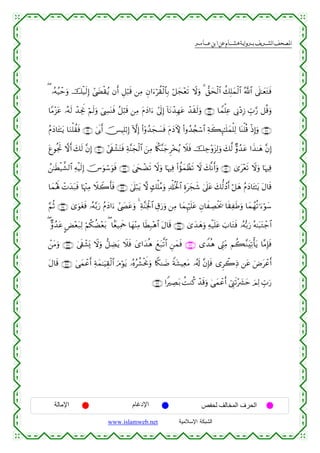 المصحف الشريف برواية هشام عن ابن عامر
فَتَعَٰلَى ٱللَّهُ ٱلْمَلِكُ ٱلْحَقُّ وَلَا تَعْجَلْ بِٱلْقُرْءَانِ مِن قَبْلِ أَن يُقْضَىٰٓ إِلَيْكَ وَحْيُهُۥ
وَقُل رَّبِّ زِدْنِى عِلْمًا وَلَقَدْ عَهِدْنَآ إِلَىٰٓ ءَادَمَ مِن قَبْلُ فَنَسِىَ وَلَمْ نَجِدْ لَهُۥ عَزْمًا
وَإِذْ قُلْنَا لِلْمَلَٰٓئِكَةِ ٱسْجُدُوا۟ لِءَادَمَ فَسَجَدُوٓا۟ إِلَّآ إِبْلِيسَ أَبَىٰ فَقُلْنَا يَٰٓـَٔادَمُ
إِنَّ هَٰذَا عَدُوٌّ لَّكَ وَلِزَوْجِكَ فَلَا يُخْرِجَنَّكُمَا مِنَ ٱلْجَنَّةِ فَتَشْقَىٰٓ إِنَّ لَكَ أَلَّا تَجُوعَ
فِيهَا وَلَا تَعْرَىٰ وَأَنَّكَ لَا تَظْمَؤُا۟ فِيهَا وَلَا تَضْحَىٰ فَوَسْوَسَ إِلَيْهِ ٱلشَّيْطَٰنُ
قَالَ يَٰٓـَٔادَمُ هَلْ أَدُلُّكَ عَلَىٰ شَجَرَةِ ٱلْخُلْدِ وَمُلْكٍ لَّا يَبْلَىٰ فَأَكَلَا مِنْهَا فَبَدَتْ لَهُمَا
سَوْءَٰتُهُمَا وَطَفِقَا يَخْصِفَانِ عَلَيْهِمَا مِن وَرَقِ ٱلْجَنَّةِ وَعَصَىٰٓ ءَادَمُ رَبَّهُۥ فَغَوَىٰ ثُمَّ
ٱجْتَبَٰهُ رَبُّهُۥ فَتَابَ عَلَيْهِ وَهَدَىٰ قَالَ ٱهْبِطَا مِنْهَا جَمِيعًۢا بَعْضُكُمْ لِبَعْضٍ عَدُوٌّ
فَإِمَّا يَأْتِيَنَّكُم مِّنِّى هُدًى فَمَنِ ٱتَّبَعَ هُدَاىَ فَلَا يَضِلُّ وَلَا يَشْقَىٰ وَمَنْ
أَعْرَضَ عَن ذِكْرِى فَإِنَّ لَهُۥ مَعِيشَةً ضَنكًا وَنَحْشُرُهُۥ يَوْمَ ٱلْقِيَٰمَةِ أَعْمَىٰ قَالَ
رَبِّ لِمَ حَشَرْتَنِىٓ أَعْمَىٰ وَقَدْ كُنتُ بَصِيرًا
الحرف المخالف لحفص الإدغام الإمالة
الشبكة الإسلامية www.islamweb.net